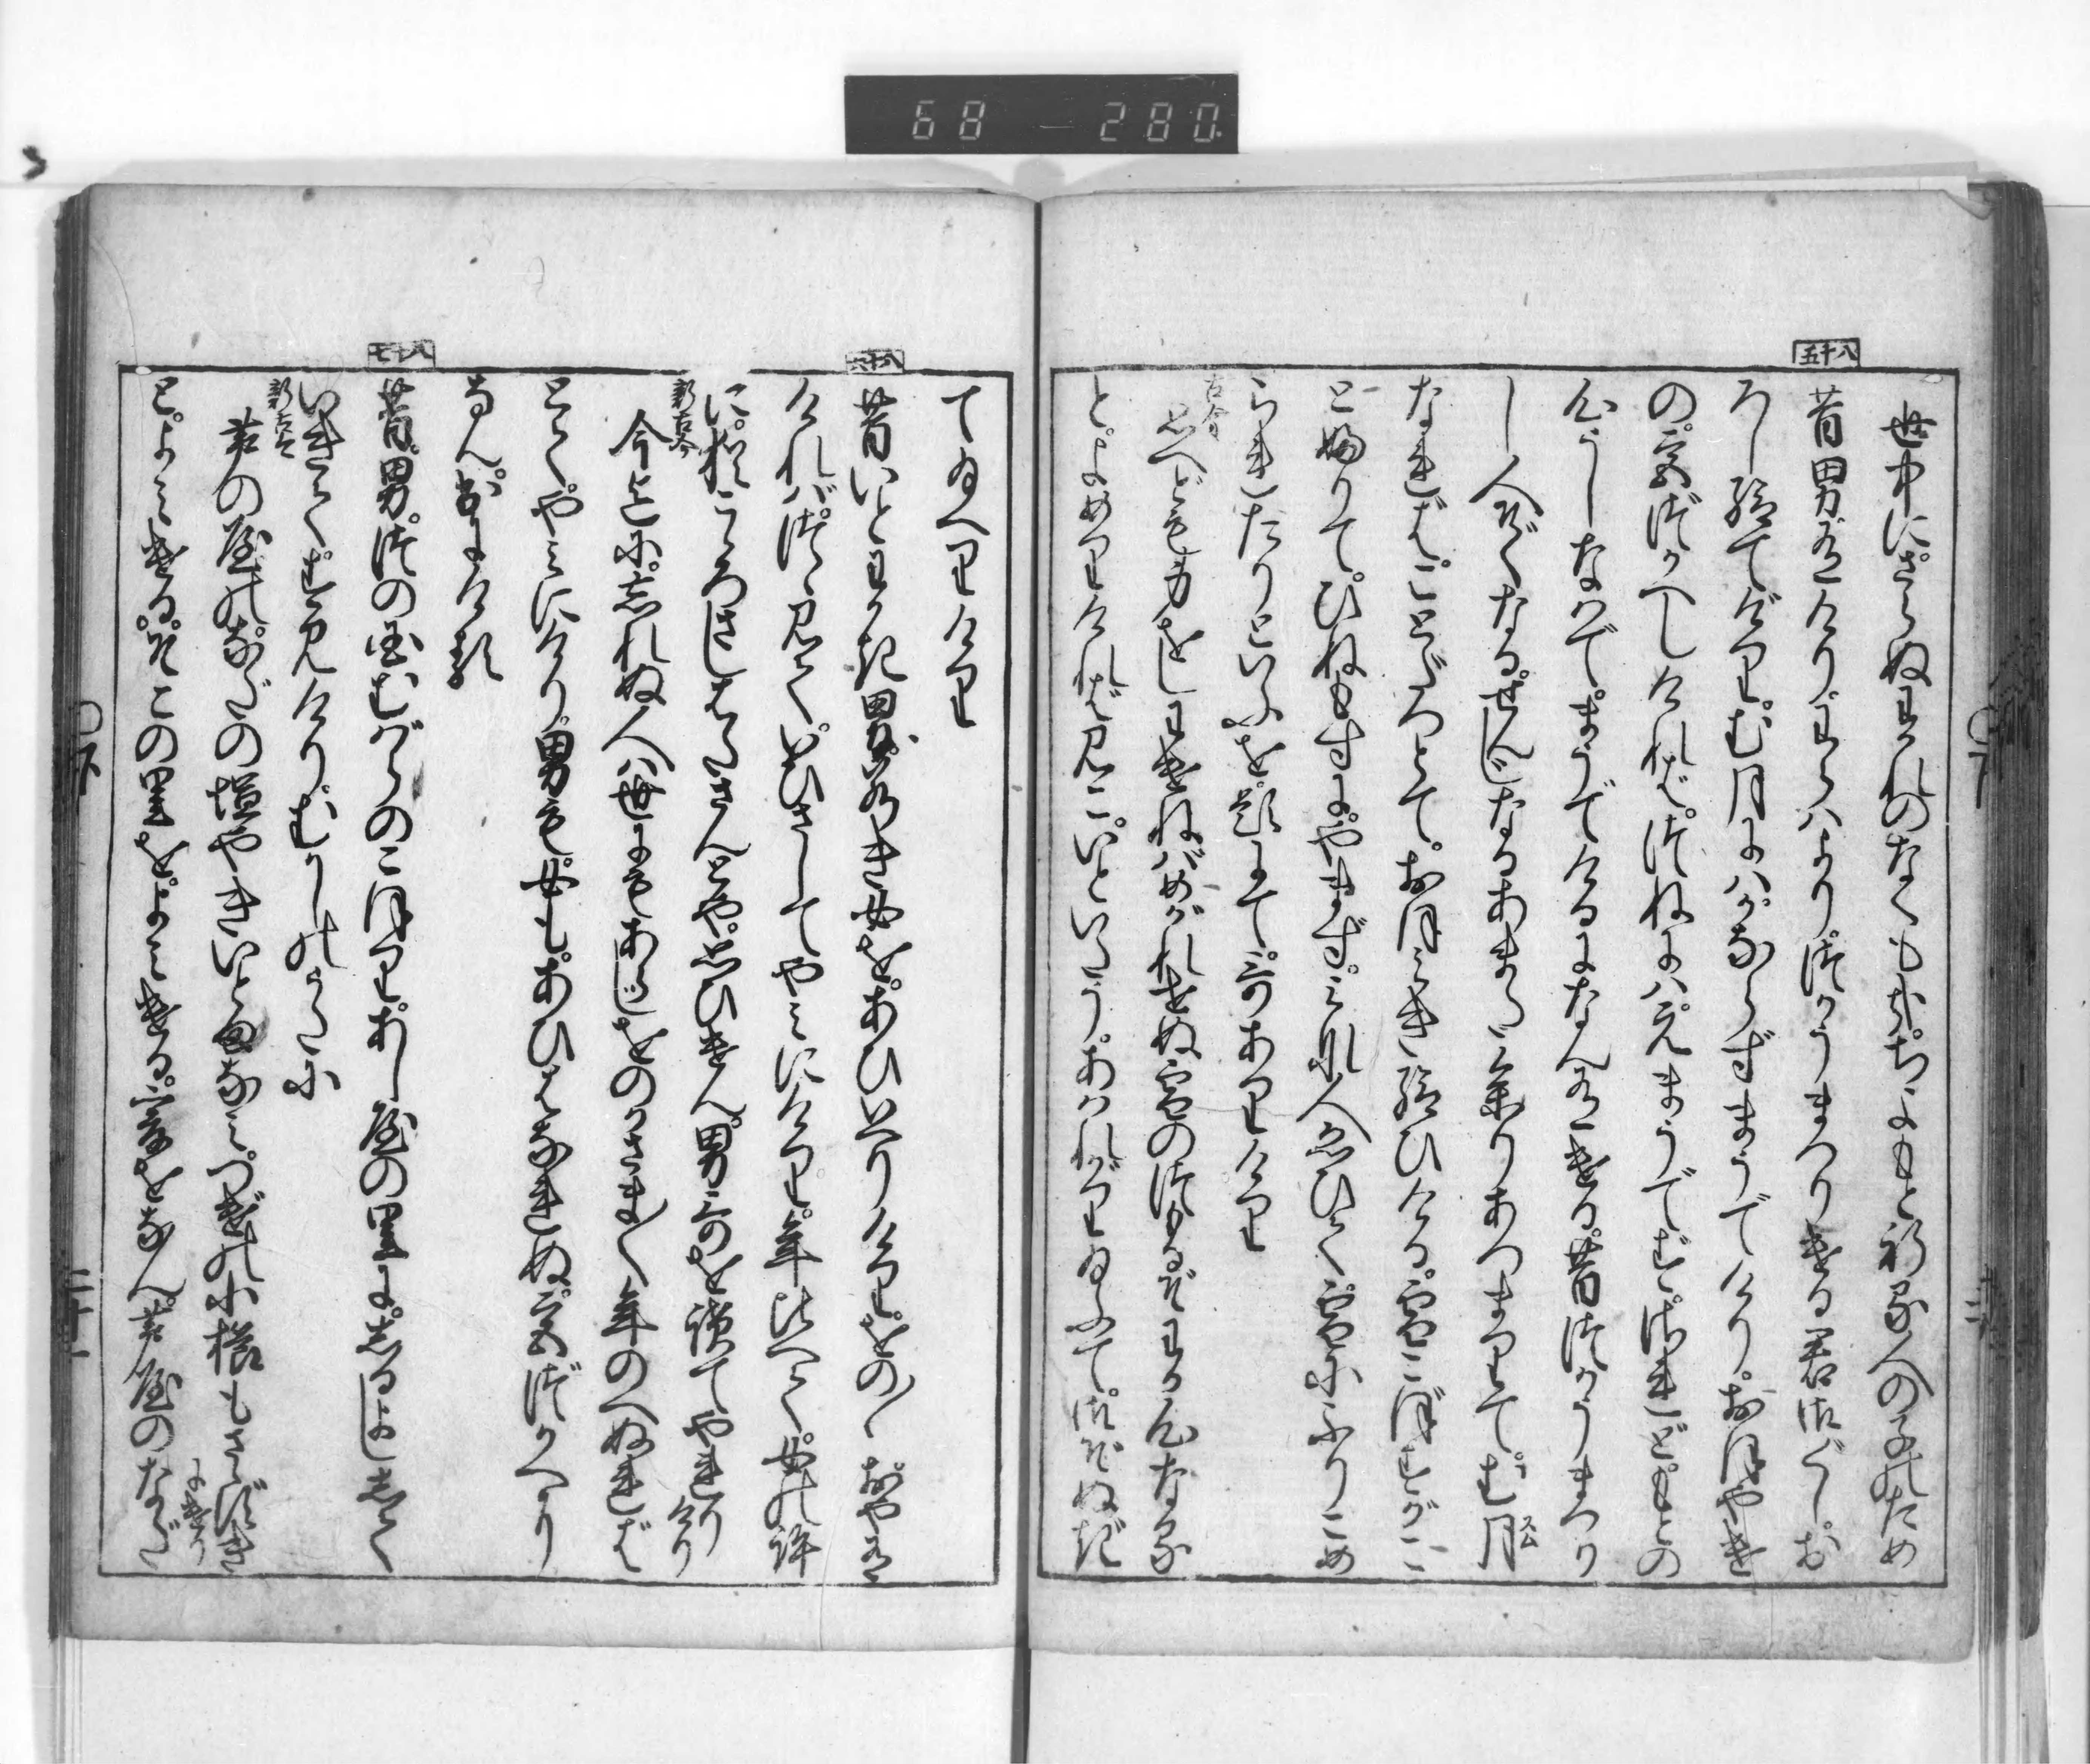 68 - 280
八十五
世中にさらぬわかれのなくも哉ちよもと祈る人の子のため
昔男有けり。わらはより。つかうまつりける君。御ぐしお
ろし給てげり。む月にハかならずまうでけり。おほやけ
の宮づかへしければ。つねにハえまうでず。されどもとの
心うしなハで。まうでけるになん有ける。昔つかうまつり
し人。ぞくなる。ぜんじなるあまた参りあつまりて。む月
なればことだつとて。おほみき給ひける。雪こぼすがご
と ふりて。ひねもすにやまず。みな人ゑひて。雪にふりこめ
られたりといふを。題にて。哥ありけり
古今
思へども身をしわけねバめがれせぬ雪のつもるぞわが心なる
とよめりければ。みこ。いといたう。あはれがり給ふて。御ぞぬぎ
て給へりけり
八十六
昔いとわかき男。わかき女を。あひいへりけり。をの〱おや有
ければ。つゝみて。いひさしてやみにけり。年比へて。女の許
に。猶こころざしはたさんとや。思ひけん。男哥を読てやれりけり
新古今
今迄に。忘れぬ人ハ世にもあらじをのがさま〲年のへぬれば
とてやみにけり。男も女も。あひはなれぬ。宮づかへ
なん。出にける
八十七
昔。男。津の国むばらのこほり。あし屋の里に。しるよしして
いきてすみけり。むかしの哥に
新古今
芦の屋のなだの塩やきいとまなみ。つげの小櫛もさゝずきにけり
と。よみける。ぞこの里を。よみける。こゝをなん。芦屋のなだ
〇下
二十一